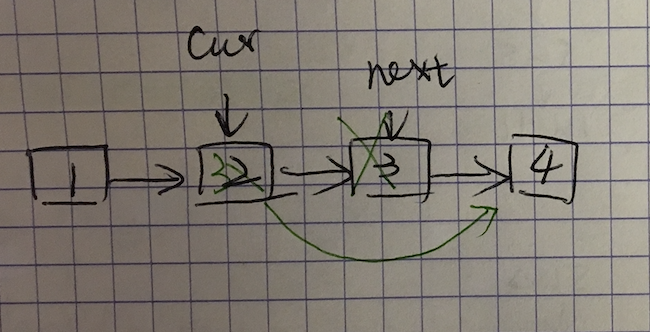 cur
next
1 → 3 2 → 3 → 4